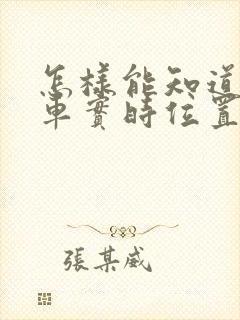 怎樣能知道
車實時位置
張某威